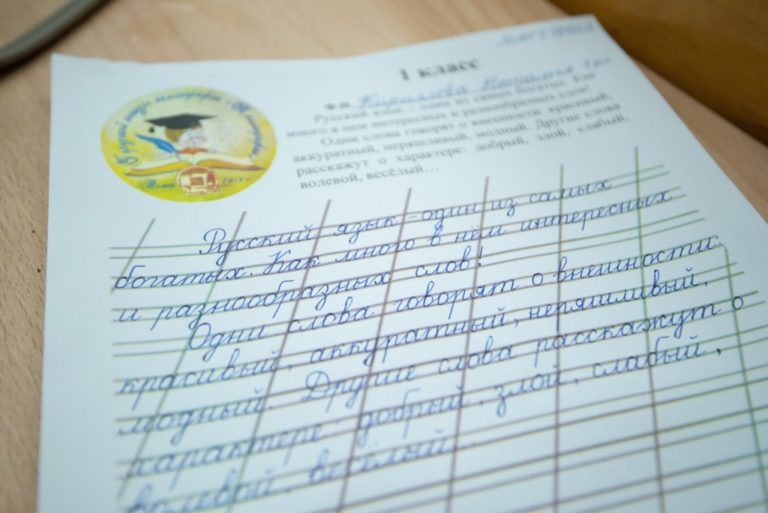 1 класс
Ф.И. Кириллова
Русский язык – один из самых богатых. Как
много в нем интересных и разнообразных слов!
Одни слова говорят о внешности: красивый,
аккуратный, неряшливый, модный. Другие слова
расскажут о характере: добрый, злой, слабый,
волевой, весёлый…
Русский язык – один из самых
богатых. Как много в нём интересных
и разнообразных слов!
Одни слова говорят о внешности:
красивый, аккуратный, неряшливый,
модный. Другие слова расскажут о
характере: добрый, злой, слабый,
волевой, весёлый...